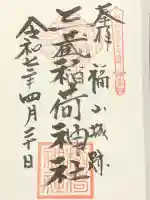 奉拝
福山城跡
三蔵稲荷神社
令和七年四月三十日